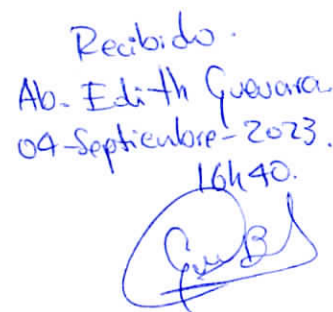 Recibido.
Ab. Edith Guevara
04-Septiembre-2023.
16h40.